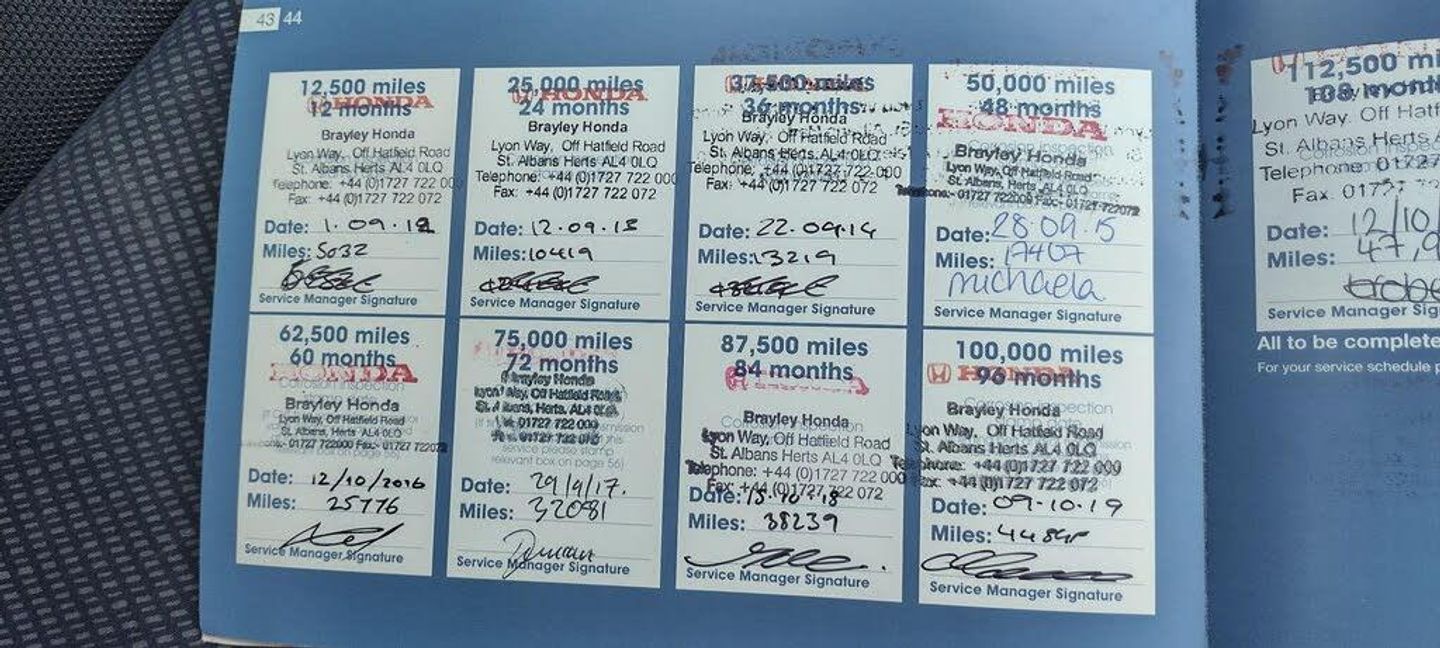 43 44
12,500 miles
12 months
HONDA
Brayley Honda
Lyon Way, Off Hatfield Road
St. Albans Herts AL4 0LQ
Telephone: +44 (0)1727 722 000
Fax: +44 (0)1727 722 072
Date: 1.09.12
Miles: 5032
Service Manager Signature
25,000 miles
24 months
HONDA
Brayley Honda
Lyon Way, Off Hatfield Road
St. Albans Herts AL4 0LQ
Telephone: +44 (0)1727 722 000
Fax: +44 (0)1727 722 072
Date: 12.09.13
Miles: 10419
Service Manager Signature
37,500 miles
36 months
Brayley Honda
Lyon Way, Off Hatfield Road
St. Albans Herts AL4 0LQ
Telephone: +44 (0)1727 722 000
Fax: +44 (0)1727 722 072
Date: 22.09.14
Miles: 13219
Service Manager Signature
50,000 miles
48 months
HONDA
Corrosion inspection
Brayley Honda
Lyon Way, Off Hatfield Road
St. Albans, Herts, AL4 0LQ
Telephone:- 01727 722000 Fax:- 01727 722072
Date: 28.09.15
Miles: 17407
Michaela
Service Manager Signature
62,500 miles
60 months
HONDA
Corrosion inspection
Brayley Honda
Lyon Way, Off Hatfield Road
St. Albans, Herts AL4 0LQ
01727 722000 Fax:- 01727 722072
relevant box on page 56)
Date: 12/10/2016
Miles: 25776
Service Manager Signature
75,000 miles
72 months
Brayley Honda
Lyon Way, Off Hatfield Road
St. Albans, Herts, AL4 0LQ
01727 722 000
01727 722 072
service please stamp
relevant box on page 56)
Date: 29/9/17.
Miles: 32081
Duncan
Service Manager Signature
87,500 miles
84 months
Brayley Honda
Lyon Way, Off Hatfield Road
St. Albans Herts AL4 0LQ
Telephone: +44 (0)1727 722 000
Fax: +44 (0)1727 722 072
Date: 15.10.18
Miles: 38239
Service Manager Signature
100,000 miles
96 months
HONDA
Corrosion inspection
Brayley Honda
Lyon Way, Off Hatfield Road
St. Albans Herts AL4 0LQ
Telephone: +44 (0)1727 722 000
+44 (0)1727 722 072
Date: 09-10-19
Miles:
Service Manager Signature
112,500 mi
108 month
Lyon Way, Off Hatf
St. Albans Herts
Telephone: 01727
Fax. 01727
Date: 12/10/
Miles: 47,9
Service Manager Sig
All to be complete
For your service schedule p